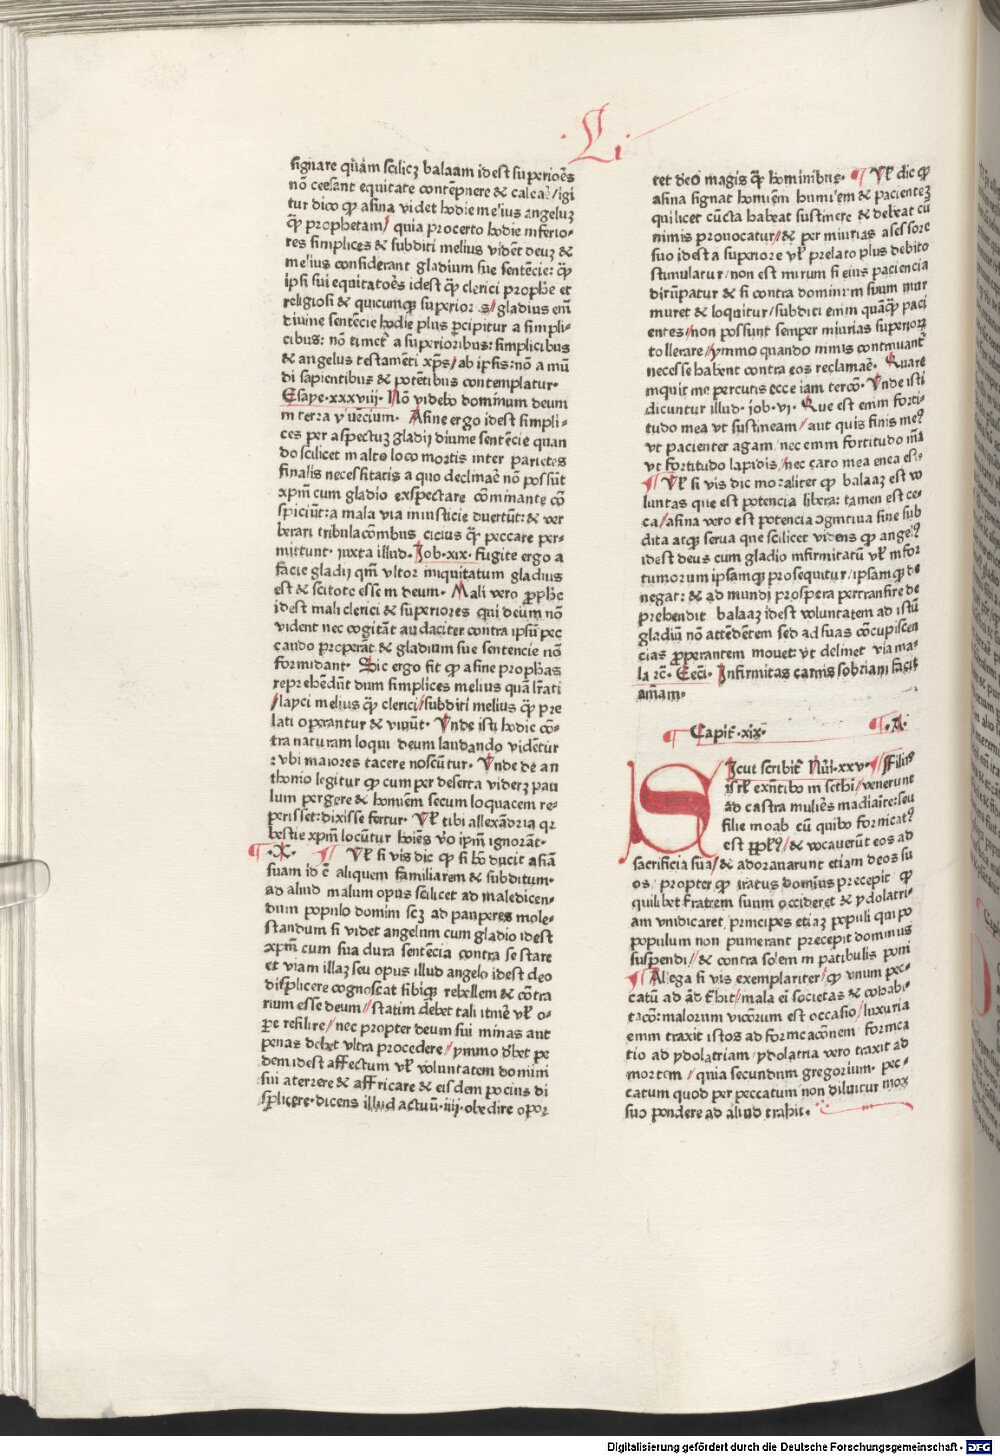 Li
signare qūam scilicz balaam id est superioēs
nō ceesant equitate contēpnere & calcaē/igi
tur dico qꝙ asina videt hodie melius angeluz
qꝫ prophetam/ quia procerto hodie inferio-
res simplices & subditi melius vidēt deuz &
melius considerant gladium sue sentēcie: qꝫ
ipsi sui equitatoēs idest qꝫ clerici prophe et
religiosi & quicumqꝫ superiores/gladius em̄
diuine sentēcie hodie plus pcipitur a simpli-
cibus: nō timet̄ a superioribus: simplicibus
& angelus testamēti xp̄s/ab ipsis: nō a mū
di sapientibus & potētibus contemplatur·
Esaye·xxxviij· Nō videbo dominum deum
in terra viuēcium· Asine ergo idest simpli-
ces per aspectuz gladij diuine sentēcie quan
do scilicet in alto loco mortis inter parietes
finalis necessitatis a quo declinaē nō possūt
xp̄m cum gladio exspectare cōminante cō
spiciūt: a mala via iniusticie diuertūt: & ver
berari tribulacōnibus cicius qꝫ peccare per-
mittunt· iuxta illud· Job·xix· fugite ergo a
facie gladij qm̄ vltor iniquitatum gladius
est & scitote esse in deum· Mali vero ꝓphe
idest mali clerici & superiores qui deum nō
vident nec cogitāt audaciter contra ipsū pec
cando properāt & gladium sue sentencie nō
formidant· Sic ergo fit ꝙ asine prophas
reprehendūt dum simplices melius quā lrati
/layci melius qꝫ clerici/subditi melius qꝫ pre
lati operantur & viuūt· Unde isti hodie cō-
tra naturam loqui deum laudando vidētur
: vbi maiores tacere noscūtur· Unde de an
thonio legitur ꝙ cum per deserta viderz pau
lum pergere & homiēm secum loquacem re-
perisset: dixisse fertur· Ve tibi allexādria qr
bestie xpm̄ locūtur hoiēs vo ipm̄ ignorāt·
·X· Vl̄ si vis dic ꝙ si hō ducit asinā
suam id ē aliquem familiarem & subditum·
ad aliud malum opus scilicet ad maledicen-
dum populo domini scz ad pauperes mole-
standum si videt angelum cum gladio idest
xpm̄ cum sua dura sentēcia contra se stare
et viam illaz seu opus illud angelo idest deo
displicere cognoscat sibiqꝫ rebellem & cōtra
rium esse deum/statim debet tali itinē vl̄ o-
pe resilire/nec propter deum sui minas aut
penas debet vltra procedere/ymmo dꝫbet pe
dem idest affectum vl̄ voluntatem domini
sui aterrere & affricare & eisdem pocius di
splicere·dicens illud actuū·iiij·obedire opor
tet deo magis qꝫ hominibus· Vl̄ dic ꝙ
asina signat homiēm humilem & pacientez
qui licet cūcta habeat sustinere & debeat cū
nimis prouocatur/& per iniurias asessore
suo idest a superiore vl̄ prelato plus debito
stimulatur/non est mirum si eius paciencia
dirūpatur & si contra dominum suum mur
muret & loquitur/subditi enim quāqꝫ paci
entes/non possunt semper iniurias superiorꝫ
tollerare/ymmo quando nimis continuant̄
necesse habent contra eos reclamaē· Quare
inquit me percutis ecce iam tercō· Unde isti
dicuntur illud· iob·vi· Que est enim forti-
tudo mea vt sustineam/aut quis finis me9
vt pacienter agam/nec enim fortitudo mā
vt fortitudo lapidis/nec caro mea enea est·
Vl̄ si vis dic moraliter ꝙ balaaz est vo
luntas que est potencia libera: tamen est ce-
ca/asina vero est potencia ɔgnitiua siue sub
dita atqꝫ serua que scilicet videns ꝙ angel9
idest deus cum gladio infirmitatū vl̄ infor
tuniorum ipsamqꝫ prosequitur/ipsamqꝫ de
negat: & ad mundi prospera pertransire de
prehendit balaaz idest voluntatem ad istū
gladiū nō attēdētem sed ad suas cōcupiscen
cias ꝓperantem mouet: vt delinet via ma-
la rc̄· Ecci· Infirmitas carnis sobriam facit
aīam·
Capit̄·xix· ·A·
Sicut scribit̄ Nūi·xxv· Filiis
isrl̄ exn̄tibȝ in sethi/venerunt
ad castra muliēs madianite: seu
filie moab cū quibȝ fornicat9
est ppl̄us/& vocauerūt eos ad
sacrificia sua/& adorauerunt etiam deos su
os/propter ꝙ iratus dominus precepit ꝙ
quilibet fratrem suum occideret & ydolatri-
am vindicaret/principes etiaz populi qui po
populum non punierant precepit dominus
suspendi/& contra solem in patibulis poni
Allega si vis exemplariter/ꝙ vnum pec-
catū ad aād t̄hit/mala ei societas & cohabi-
tacō: malorum vicōrum est occasio/luxuria
enim traxit istos ad fornicacōnem/fornica
tio ad ydolatriam/ydolatria vero traxit ad
mortem/quia secundum gregorium· pec-
catum quod per peccatum non diluitur mox
suo pondere ad aliud trahit·
Digitalisierung gefördert durch die Deutsche Forschungsgemeinschaft - DFG